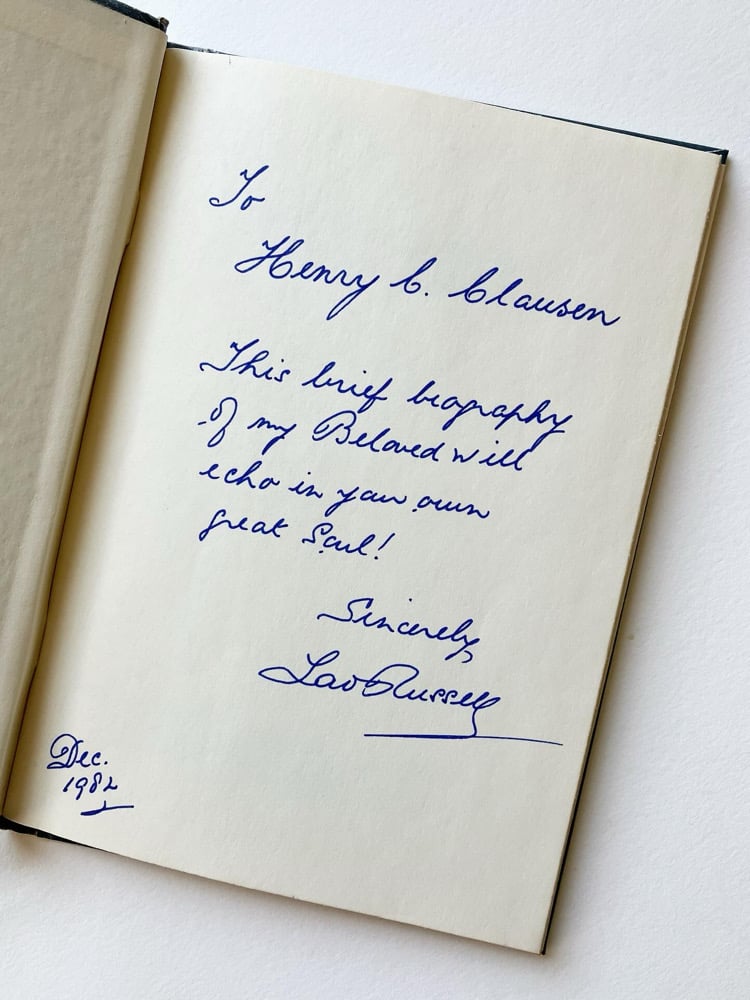 To
Henry C. Clausen
This brief biography
of my Beloved will
echo in your own
great Soul!
Sincerely,
Lao Russell
Dec.
1982